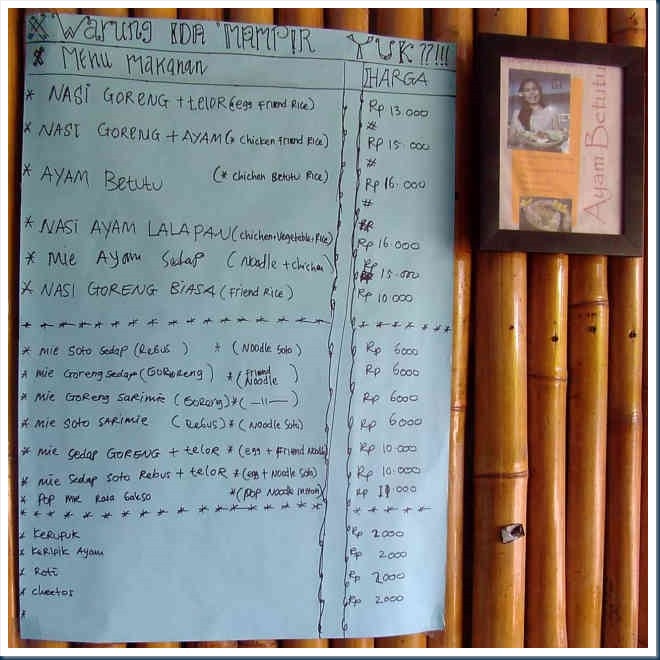 Warung IDA MAMPIR YUK??!!!
* Menu Makanan HARGA
* NASI GORENG + telor (egg Friend Rice) Rp 13.000
#
* NASI GORENG + AYAM (* chicken friend Rice) Rp 15.000
#
* AYAM Betutu (* chicken Betutu Rice) Rp 16.000
#
* NASI AYAM LALAPAN (chicken+Vegetable+Rice) Rp 16.000
* Mie Ayam Sedap (Noodle + chicken) Rp 15.000
* NASI GORENG BIASA (Friend Rice) Rp 10.000
* * * * * * * * * * * * * * * * * * * * * * * *
* Mie Soto Sedap (Rebus) * (Noodle Soto) Rp 6000
* Mie Goreng Sedap (GORORENG) * (Friend Noodle) Rp 6000
* Mie Goreng Sarimie (Goreng) * (—11—) Rp 6000
* Mie Soto SARIMIE (Rebus) * (Noodle Soto) Rp 6000
* Mie Sedap GORENG + telor * (egg + Friend Noodle) Rp 10.000
* Mie Sedap Soto Rebus + telor * (egg + Noodle Soto) Rp 10.000
* POP Mie Rasa Bakso * (POP Noodle) Rp 11.000
* * * * * * * * * * * * * * * * * * * * * * * *
* Kerupuk Rp 2000
* Keripik Ayam Rp 2000
* Roti Rp 2000
* cheetos Rp 2000
*
Ayam Betutu